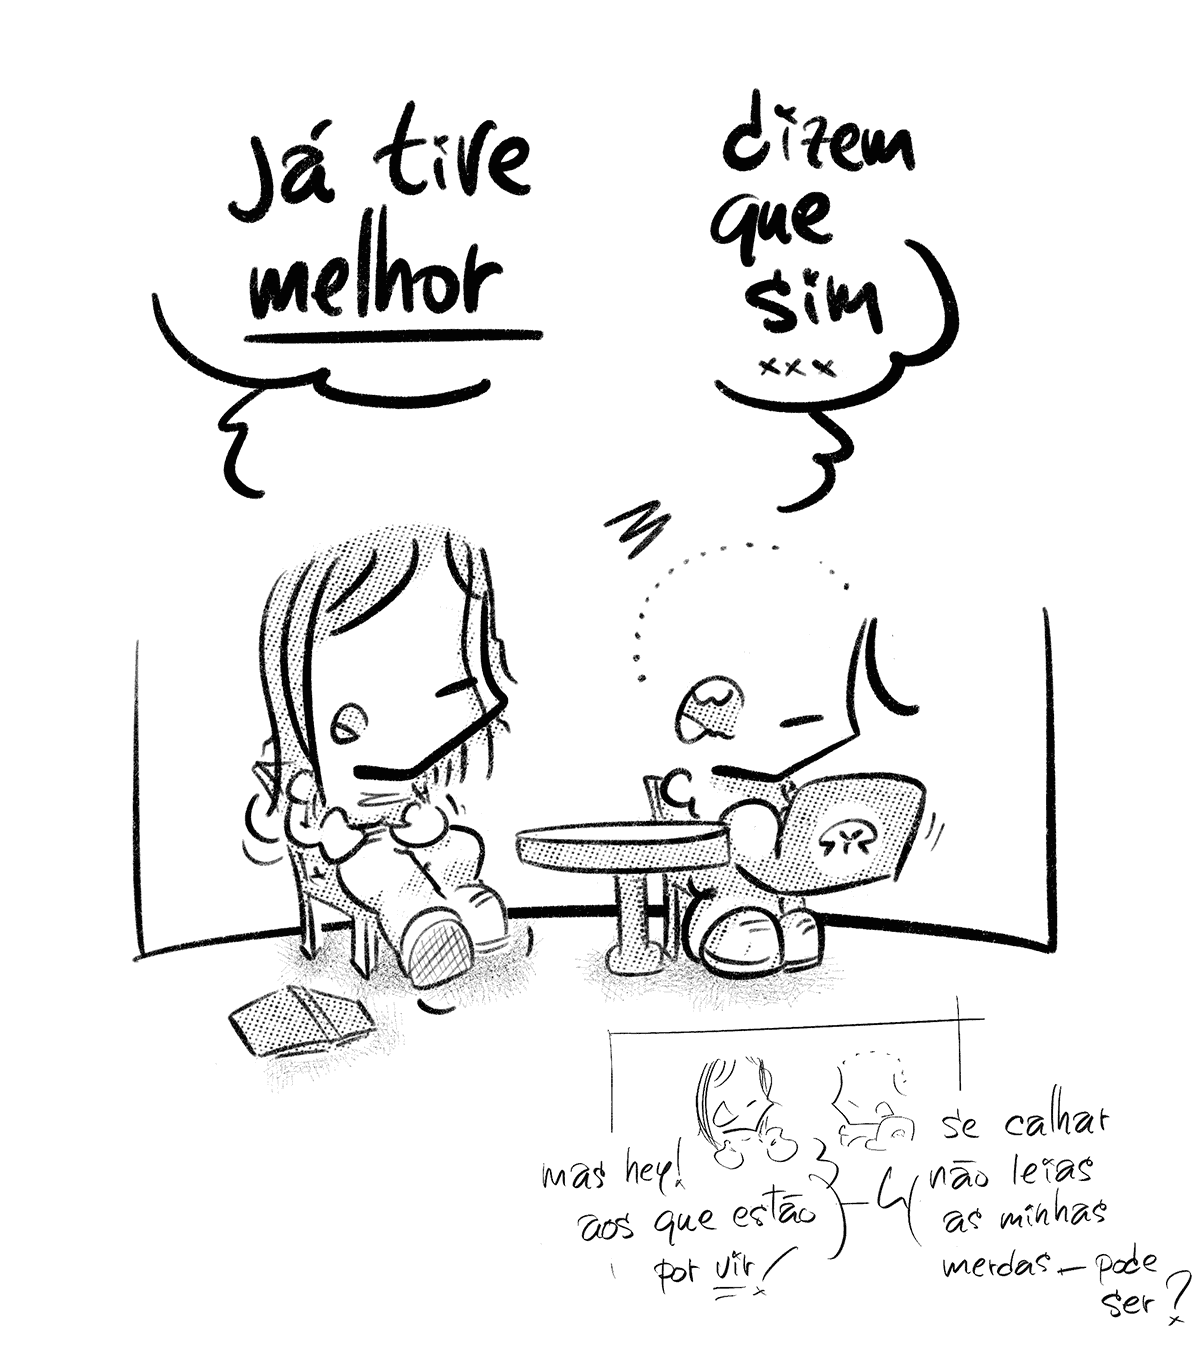 Já tive
melhor
dizem
que
sim
...
mas hey!
aos que estão
por vir!
se calhar
não leias
as minhas
merdas – pode
ser?